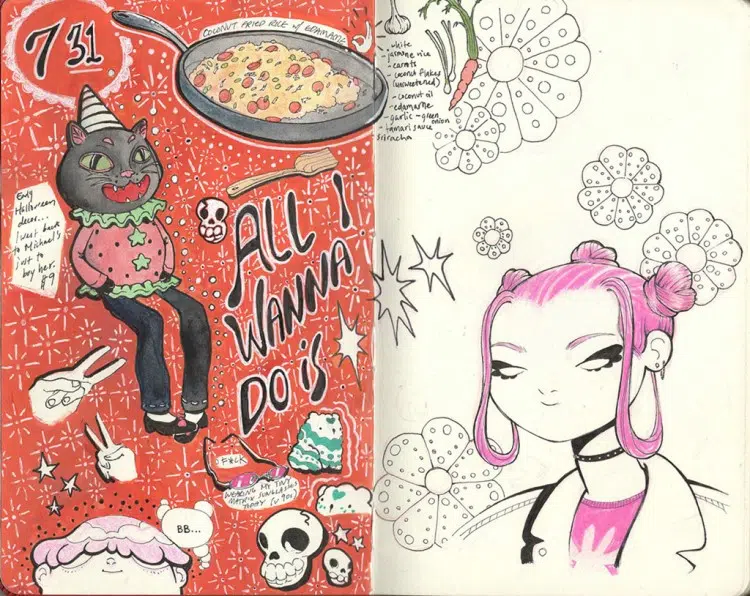 7 31
COCONUT FRIED RICE w/ EDAMAME
- white
- jasmine rice
- carrots
- coconut flakes
(unsweetened)
- coconut oil
- edamame
- garlic - green
onion
- tamari sauce
sriracha
Early
Halloween
decor...
i went back
to Michael's
just to
buy her.
$9
ALL I
WANNA
DO is
F*CK
WEARING MY TINY
MATRIX SUNGLASSES
TODAY (v 90s)
BB...